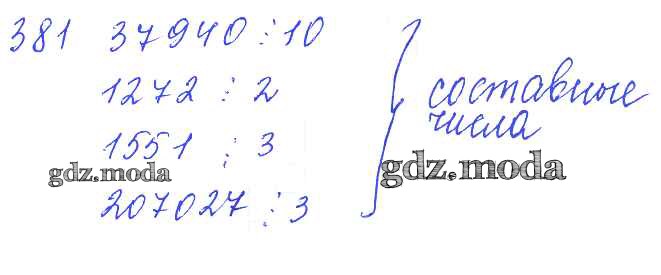 381 37940 ⋮ 10
1272 ⋮ 2
составные
числа
1551 ⋮ 3
gdz.moda
gdz.moda
207027 ⋮ 3